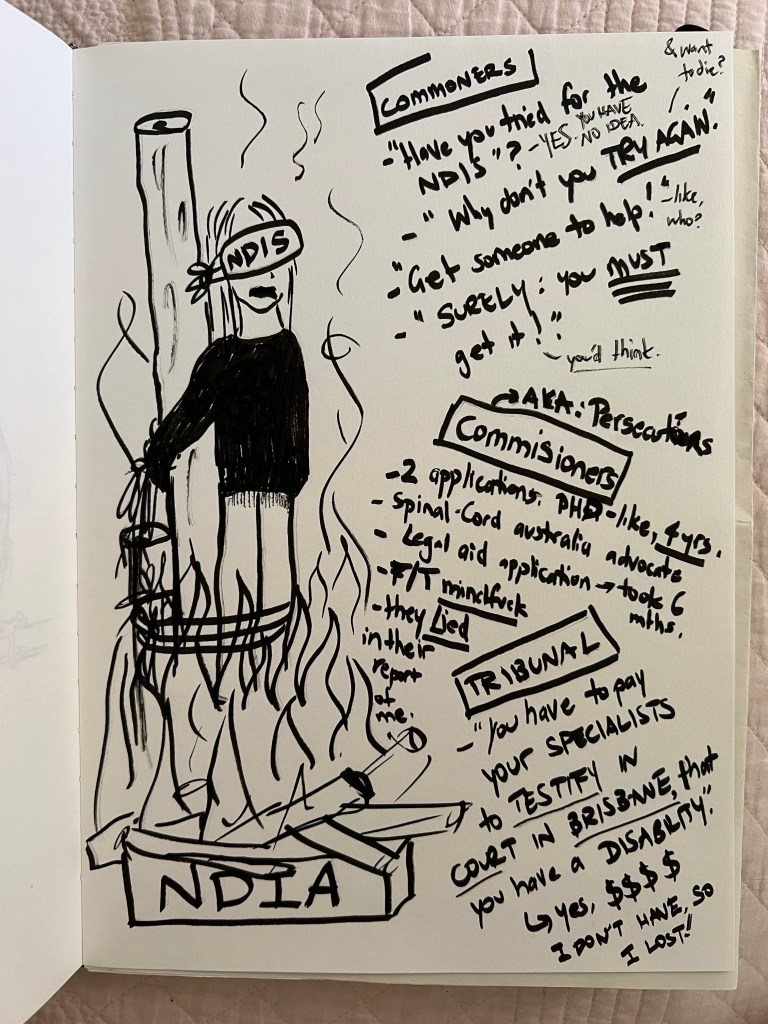 & want
to die?
COMMONERS
- "Have you tried for the
NDIS"? - YES. YOU HAVE
NO IDEA.
- "Why don't you TRY AGAIN."
- "Get someone to help!" - like,
who?
- "SURELY: you MUST
get it!"
- you'd think.
NDIS
→ AKA: Persecutioners
Commisioners
- 2 applications. PHD-like, 4 yrs.
- Spinal-Cord australia advocate
- Legal aid application → took 6
mths.
- F/T mindfuck
- they Lied
in their
report
of
me.
TRIBUNAL
- "You have to pay
your SPECIALISTS
to TESTIFY IN
COURT IN BRISBANE, that
you have a DISABILITY."
↳ yes, $$$$
I DON'T HAVE, SO
I LOST!
NDIA